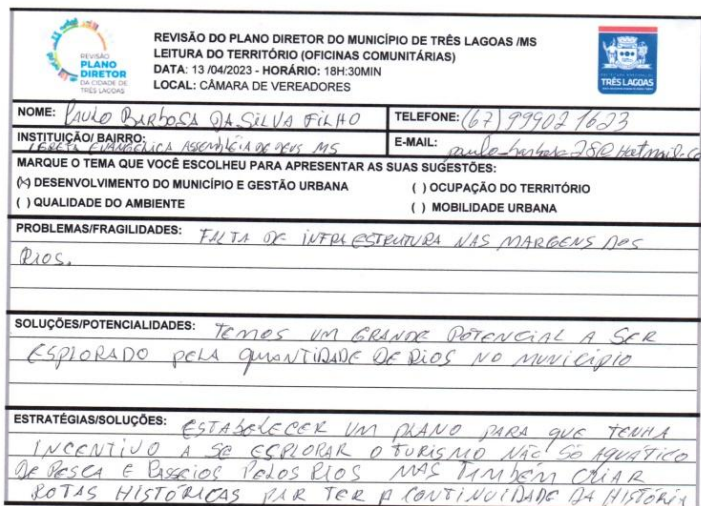 REVISÃO
PLANO
DIRETOR
DA CIDADE DE
TRÊS LAGOAS
REVISÃO DO PLANO DIRETOR DO MUNICÍPIO DE TRÊS LAGOAS /MS
LEITURA DO TERRITÓRIO (OFICINAS COMUNITÁRIAS)
DATA: 13 /04/2023 - HORÁRIO: 18H:30MIN
LOCAL: CÂMARA DE VEREADORES
TRÊS LAGOAS
NOME: PAULO BARBOSA DA SILVA FILHO
TELEFONE: (67) 99902 1623
INSTITUIÇÃO/ BAIRRO: IGREJA EVANGÉLICA ASSEMBLÉIA DE DEUS MS
E-MAIL: paulo-barbosa28@Hotmail.co
MARQUE O TEMA QUE VOCÊ ESCOLHEU PARA APRESENTAR AS SUAS SUGESTÕES:
(x) DESENVOLVIMENTO DO MUNICÍPIO E GESTÃO URBANA
( ) OCUPAÇÃO DO TERRITÓRIO
( ) QUALIDADE DO AMBIENTE
( ) MOBILIDADE URBANA
PROBLEMAS/FRAGILIDADES: FALTA DE INFRAESTRUTURA NAS MARGENS DOS
RIOS.
SOLUÇÕES/POTENCIALIDADES: TEMOS UM GRANDE POTENCIAL A SER
ESPLORADO PELA QUANTIDADE DE RIOS NO MUNICÍPIO
ESTRATÉGIAS/SOLUÇÕES: ESTABELECER UM PLANO PARA QUE TENHA
INCENTIVO A SE ESPLORAR O TURISMO NÃO SÓ AQUÁTICO
DE PESCA E PASSEIOS PELOS RIOS MAS TAMBÉM CRIAR
ROTAS HISTÓRICAS PAR TER A CONTINUIDADE DA HISTÓRIA